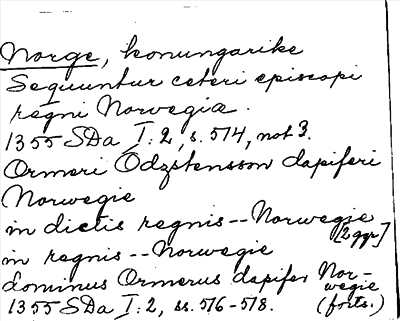 Norge, konungarike
Sequuntur ceteri episcopi
regni Norwegiæ.
1355 SDa I:2, s. 574, not 3.
Ormeri Odzstensson dapiferi
Norwegie
in dictis regnis -- Norwegie
[2 ggr]
in regnis -- Norwegie
dominus Ormerus dapifer Nor-
wegie
1355 SDa I:2, ss. 576-578. (forts.)